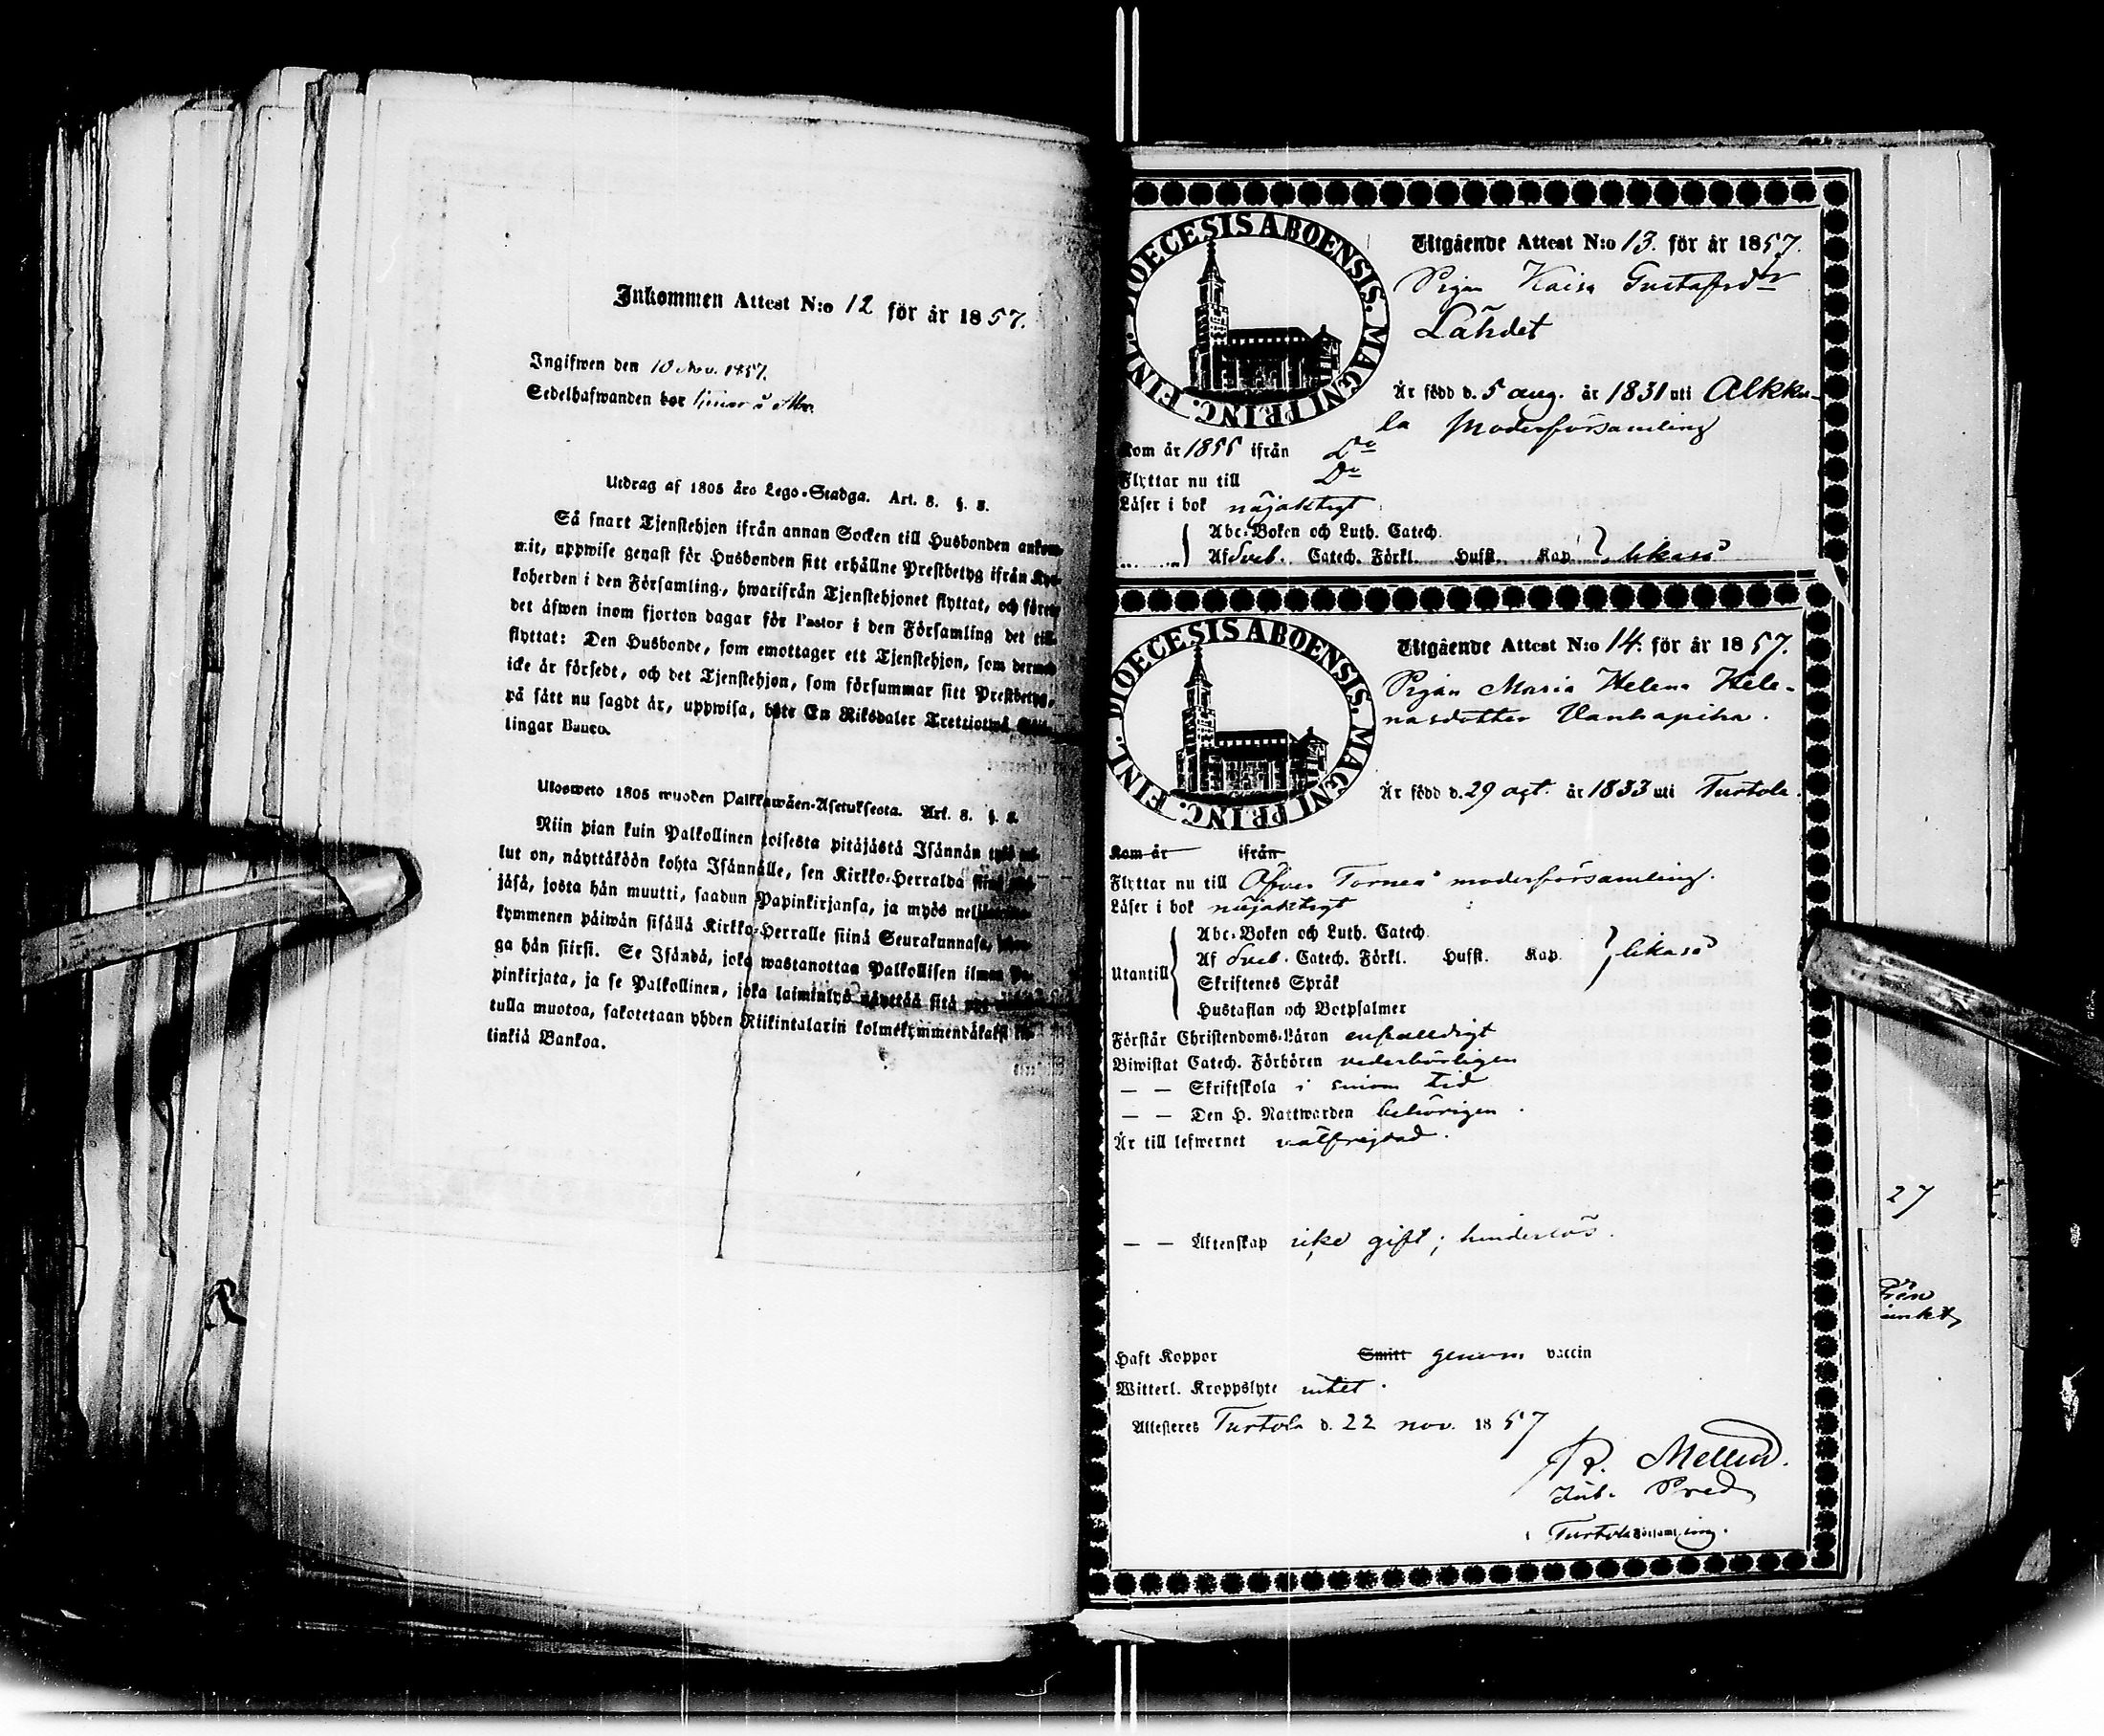 Inkommen Attest N:o 12 för år 1857.
Ingifwen den 10 Nov. 1857.
Sedelhafwanden bor
Utdrag af 1805 års Lego-Stadga. Art. 8. §. 8.
Så snart Tjenstehjon ifrån annan Socken till Husbonden ankom-
mit, uppwise genast för Husbonden sitt erhållne Prestbetyg ifrån Kyr-
koherden i den Församling, hwarifrån Tjenstehjonet flyttat, och förete
det äfwen inom fjorton dagar för Pastor i den Församling det till
flyttat: Den Husbonde, som emottager ett Tjenstehjon, som dermed
icke är försedt, och det Tjenstehjon, som försummar sitt Prestbetyg,
på sätt nu sagdt är, uppwisa, böte En Riksdaler Trettiotwå Skil-
lingar Banco.
Ulosweto 1805 wuoden Palkkawäen-Asetuksesta. Art. 8. §. 8.
Niin pian kuin Palkollinen toisesta pitäjästä Isännän tygö tul-
lut on, näyttäköön kohta Isännälle, sen Kirkko-Herralda siinä pitä-
jäsä, josta hän muutti, saadun Papinkirjansa, ja myös neljäntoista-
kymmenen päiwän sisällä Kirkko-Herralle siinä Seurakunnasa, johon-
ga hän siirsi. Se Isändä, joka wastanottaa Palkollisen ilman Pa-
pinkirjata, ja se Palkollinen, joka laiminlyö näyttää sitä nyt
tulla muotoa, sakotetaan yhden Riikintalarin kolmekymmendäkaksi kil-
linkiä Bankoa.
DIOECESIS ABOENSIS. MAGNI PRINC. FINL.
Utgående Attest N:o 13. för år 1857.
Pigan Kaisa Gustafsdr
Lahdet
Är född d. 5 aug. år 1831 uti Alkku-
la Moderförsamling
Kom år 1856 ifrån Do
Flyttar nu till Do
Läser i bok nöjaktigt
Abc-Boken och Luth. Catech.
Af Sveb. Catech. Förkl. Husft. Kap. likaså
DIOECESIS ABOENSIS. MAGNI PRINC. FINL.
Utgående Attest N:o 14. för år 1857.
Pigan Maria Helena Hele-
nasdotter Vanhapiha.
Är född d. 29 oct. år 1833 uti Turtola.
Kom år ifrån
Flyttar nu till Öfver Torneå moderförsamling.
Läser i bok nöjaktigt
Abc-Boken och Luth. Catech.
Utantill Af Sveb. Catech. Förkl. Husft. Kap. likaså
Skriftenes Språk
Hustaflan och Botpsalmer
Förstår Christendoms-Läran enfaldigt
Biwistat Catech. Förhören vederbörligen
— — Skriftskola i sinom tid
— — Den H. Nattwarden behörigen.
Är till lefwernet välfrejdad.
— — Äktenskap icke gift; hinderlös.
Haft Koppor Smitt genom vaccin
Witterl. Kroppslyte intet.
Attesteras Turtola d. 22 nov. 1857
R. Mellin.
Pred
Turtola Församling.
27